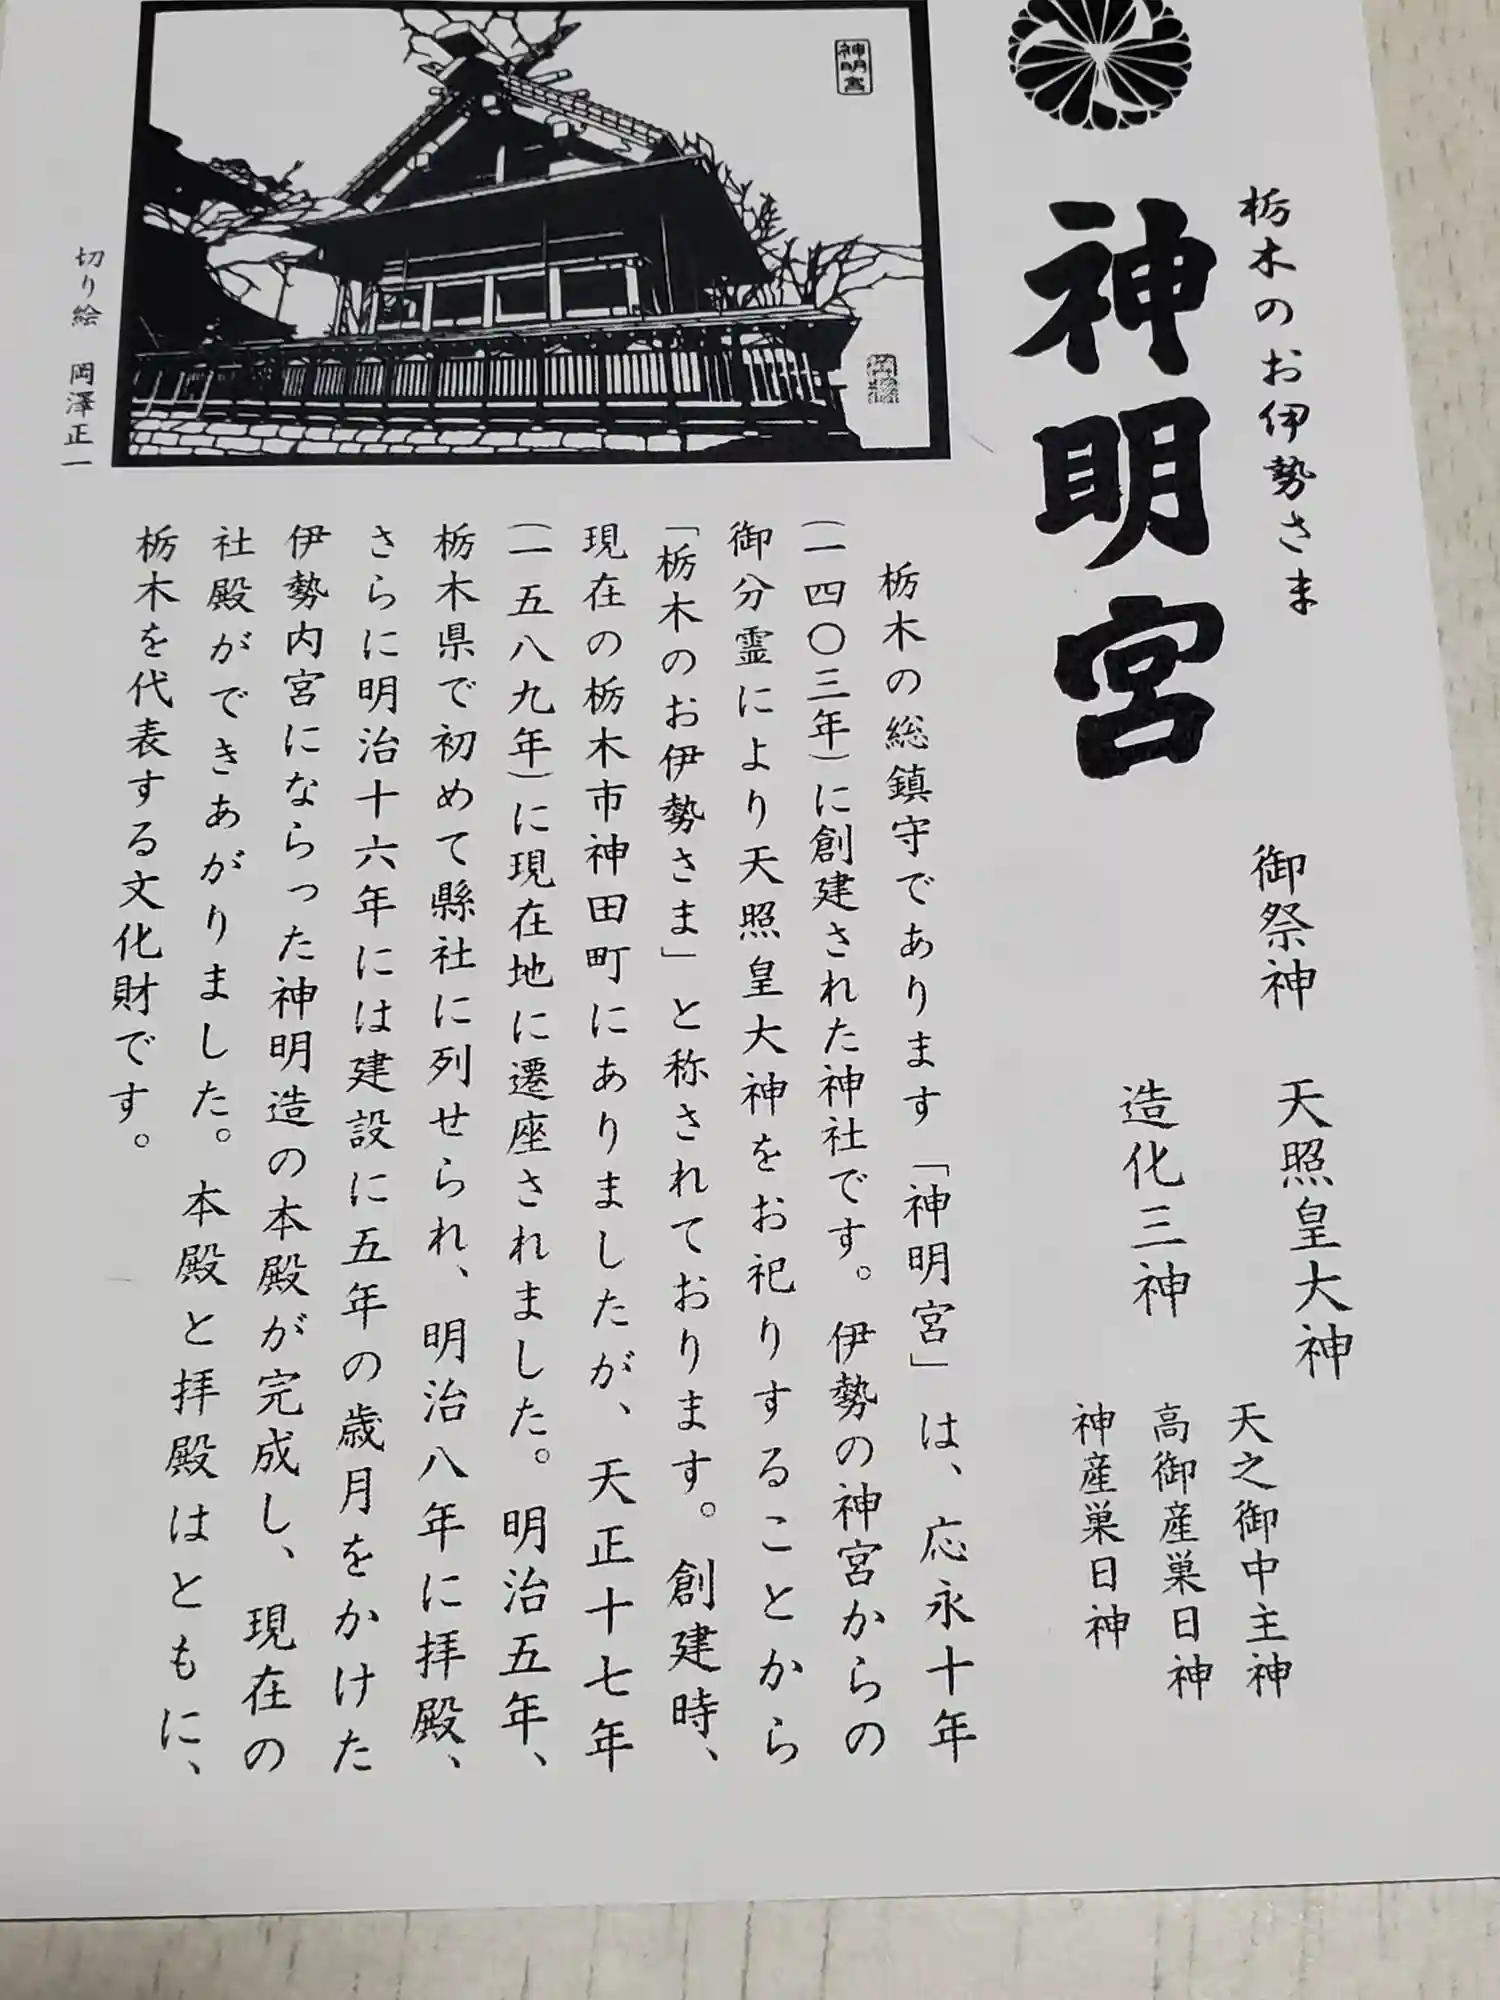 栃木のお伊勢さま
神明宮
御祭神　天照皇大神
造化三神
天之御中主神
高御産巣日神
神産巣日神
栃木の総鎮守であります「神明宮」は、応永十年
(一四〇三年)に創建された神社です。伊勢の神宮からの
御分霊により天照皇大神をお祀りすることから
「栃木のお伊勢さま」と称されております。創建時、
現在の栃木市神田町にありましたが、天正十七年
(一五八九年)に現在地に遷座されました。明治五年、
栃木県で初めて縣社に列せられ、明治八年に拝殿、
さらに明治十六年には建設に五年の歳月をかけた
伊勢内宮にならった神明造の本殿が完成し、現在の
社殿ができあがりました。本殿と拝殿はともに、
栃木を代表する文化財です。
神明宮
切り絵　岡澤正一